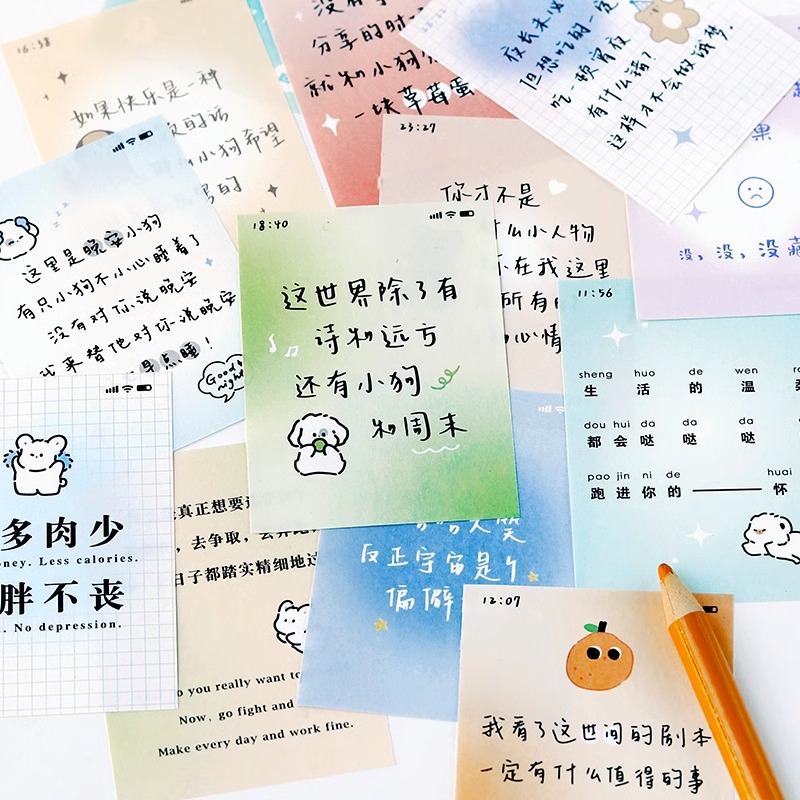 16:38
如果快乐是一种
的话
小狗希望
的
没有
分享的时
就和小狗
一块草莓蛋
夜长未
但想吃的一定
吃一顿宵夜
有什么错?
这样才不会做饿梦。
果
没,没,没藏
这里是晚安小狗
有只小狗不小心睡着了
没有对你说晚安
我来替他对你说晚安
早点睡!
Good night
23:27
你才不是
什么小人物
你在我这里
所有的
心情
18:40
这世界除了有
诗和远方
还有小狗
和周末
11:56
sheng huo de wen
生 活 的 温
dou hui da da da
都 会 哒 哒 哒
pao jin ni de huai
跑 进 你 的 —— 怀
多肉少
oney. Less calories.
胖不丧
. No depression.
真正想要
,去争取,去
日子都踏实精细地过
o you really want to
Now, go fight and
Make every day and work fine.
反正宇宙是个
偏僻
12:07
我看了这世间的剧本
一定有什么值得的事